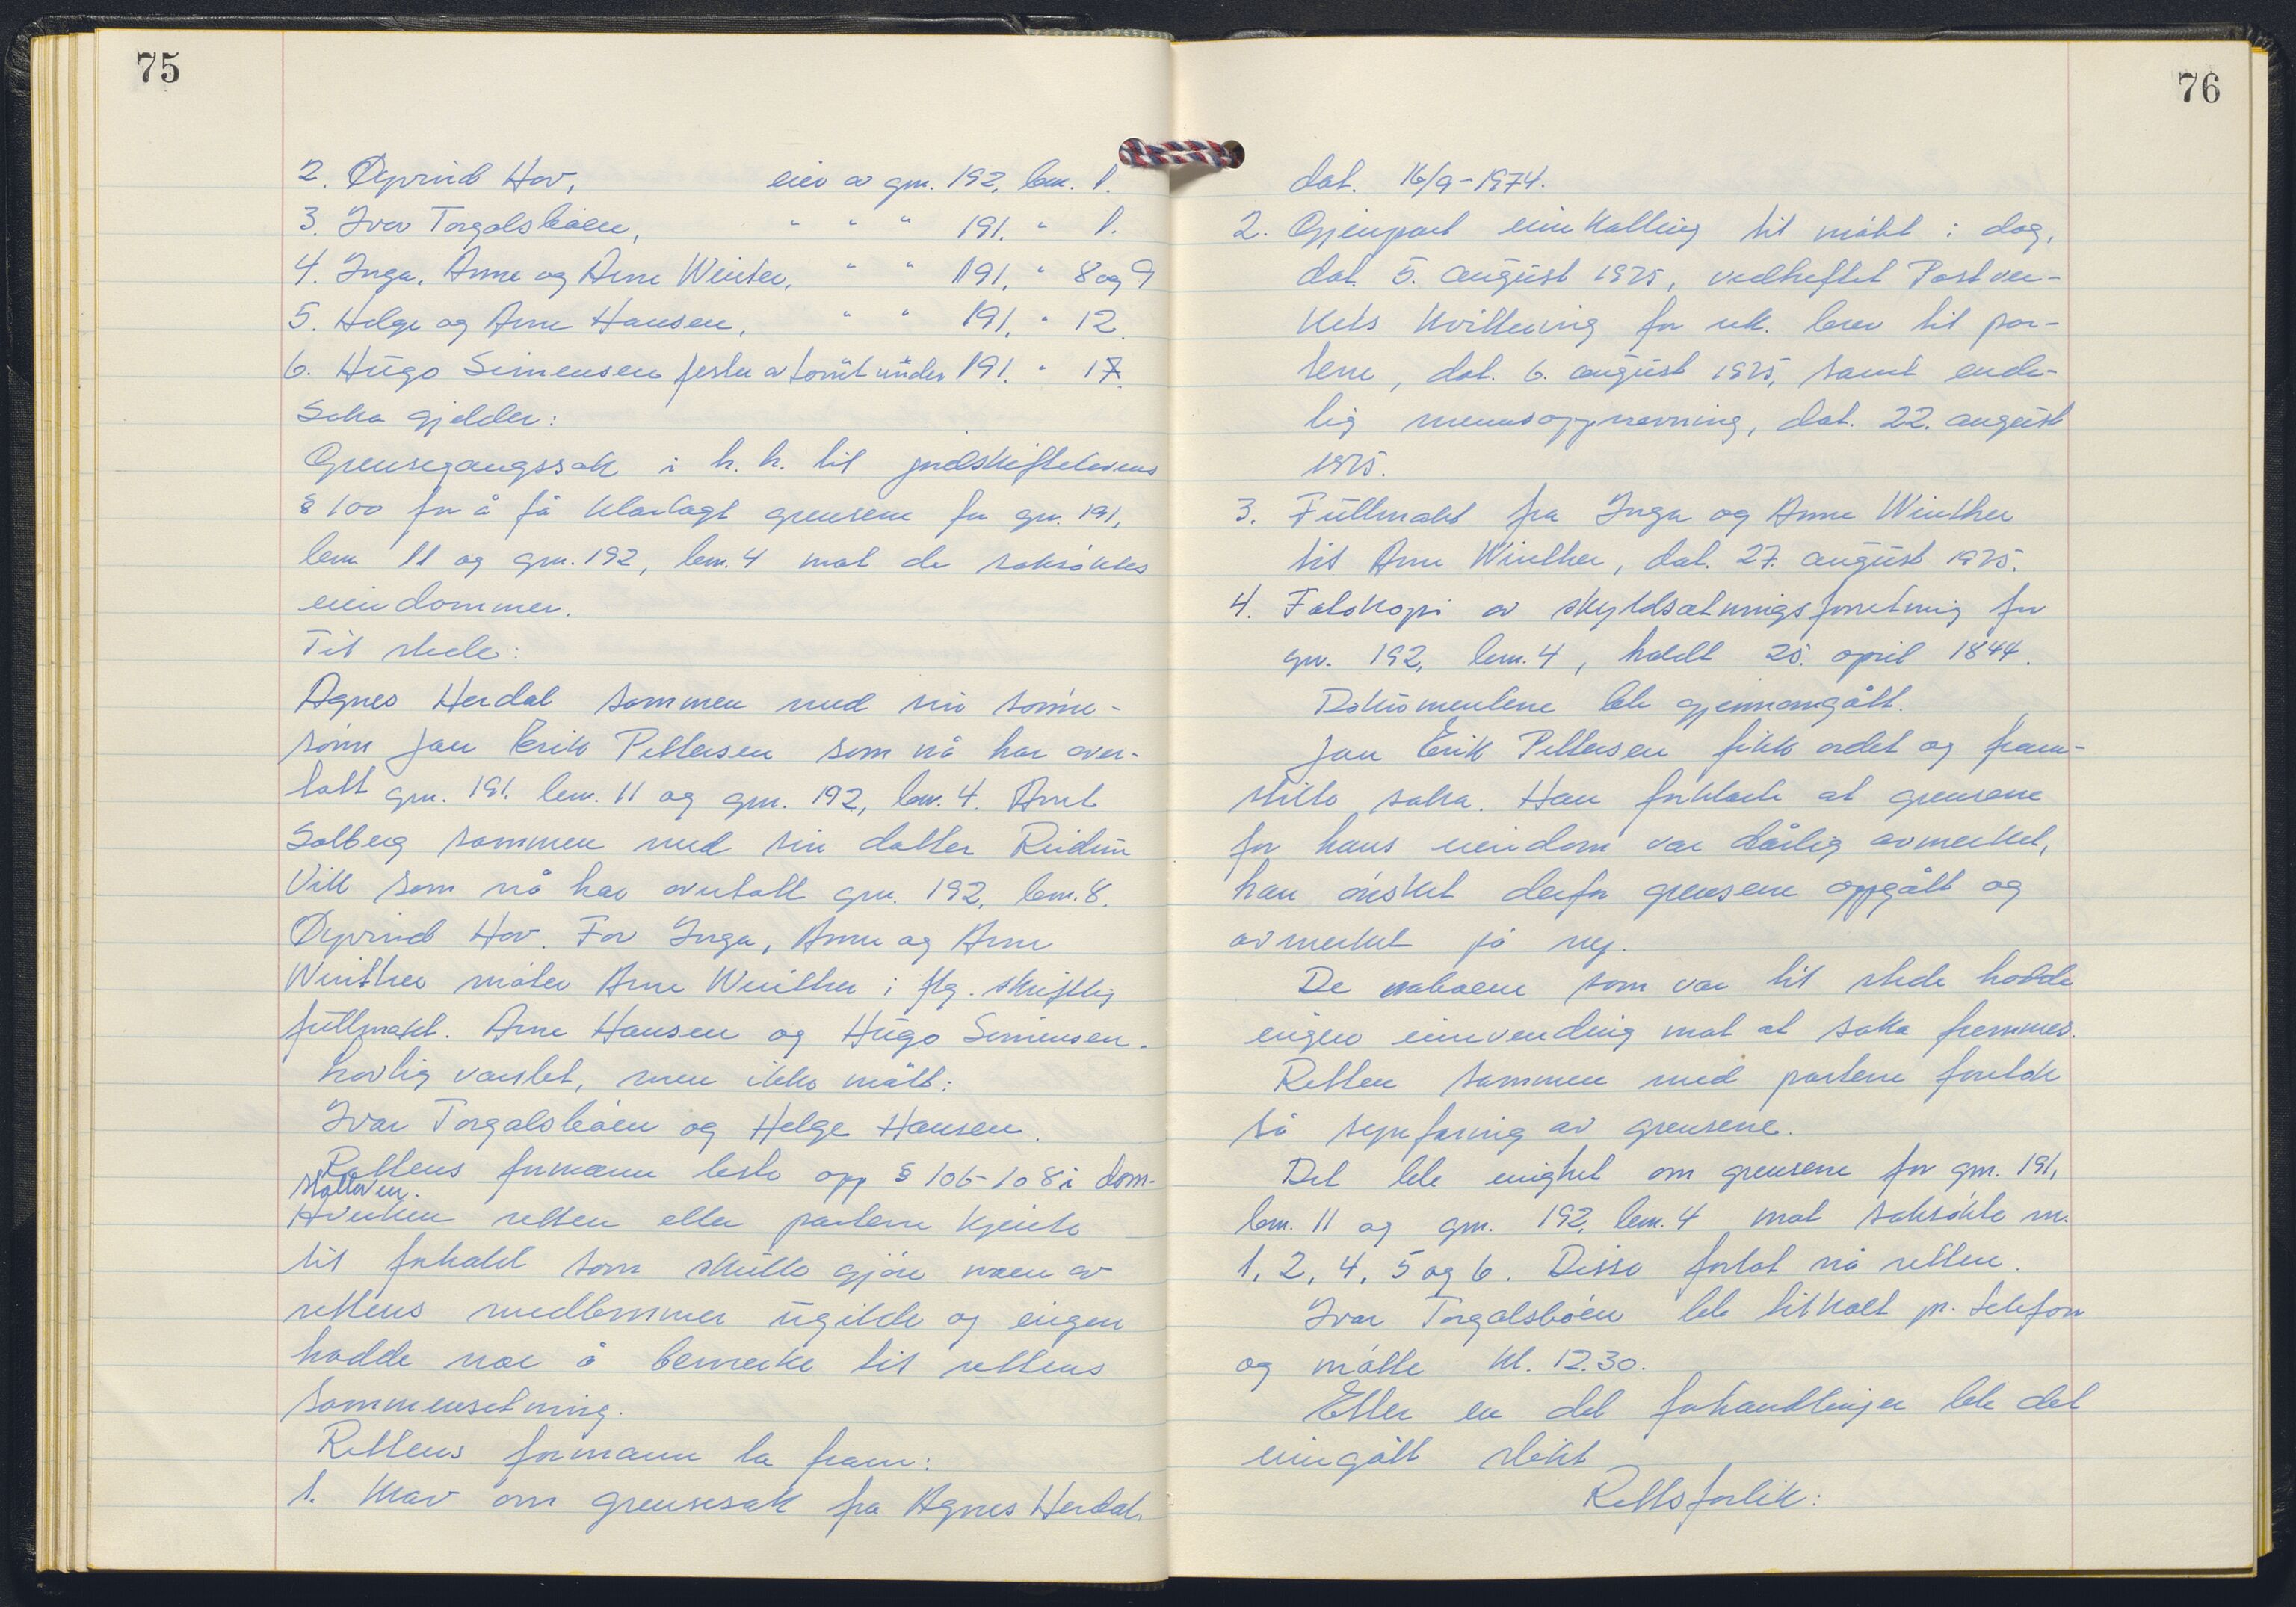 75
2. Øyvind Hov, eier av gnr. 192, bnr. 1.
3. Ivar Torgalsbøen, " " " 191. " 1.
4. Inga, Anne og Arne Winter, " " 191, " 8 og 9
5. Helge og Arne Hansen, " " 191, " 12.
6. Hugo Simensen fester av tomt under 191. " 17.
Saka gjelder:
Grensegangssak i h.h. til jordskiftelovens
§ 100 for å få klarlagt grensene for gnr. 191,
bnr. 11 og gnr. 192, bnr. 4 mot de saksøktes
eiendommer.
Til stede:
Agnes Herdal sammen med sin sønne-
sønn Jan Erik Pettersen som nå har over-
tatt gnr. 191. bnr. 11 og gnr. 192, bnr. 4. Arnt
Solberg sammen med sin datter Reidun
Vik som nå har overtatt gnr. 192, bnr. 8.
Øyvind Hov. For Inga, Anne og Arne
Winther møter Arne Winther i flg. skriftlig
fullmakt. Arne Hansen og Hugo Simensen.
Lovlig varslet, men ikke møtt:
Ivar Torgalsbøen og Helge Hansen.
Rettens formann leste opp § 106-108 i dom-
stolloven.
Hverken retten eller partene kjente
til forhold som skulle gjøre noen av
rettens medlemmer ugilde og ingen
hadde noe å bemerke til rettens
sammensetning.
Rettens formann la fram:
1. Krav om grensesak fra Agnes Herdal,
76
dat. 16/9-1974.
2. Gjenpart innkalling til møte i dag,
dat. 5. august 1975, vedheftet Postver-
kets kvittering for rek. brev til par-
tene, dat. 6. august 1975, samt ende-
lig mennsoppnevning, dat. 22. august
1975.
3. Fullmakt fra Inga og Anne Winther
til Arne Winther, dat. 27. august 1975.
4. Fotokopi av skyldsetningsforretning for
gnr. 192, bnr. 4, holdt 25. april 1844.
Dokumentene ble gjennomgått.
Jan Erik Pettersen fikk ordet og frem-
stilte saka. Han forklarte at grensene
for hans eiendom var dårlig avmerket,
han ønsket derfor grensene oppgått og
avmerket på ny.
De naboene som var til stede hadde
ingen innvending mot at saka fremmes.
Retten sammen med partene foretok
så synfaring av grensene.
Det ble enighet om grensene for gnr. 191,
bnr. 11 og gnr. 192, bnr. 4 mot saksøkte nr.
1, 2, 4, 5 og 6. Disse forlot nå retten.
Ivar Torgalsbøen ble tilkalt pr. telefon
og møtte kl. 12.30.
Etter en del forhandlinger ble det
inngått slikt
Rettsforlik: